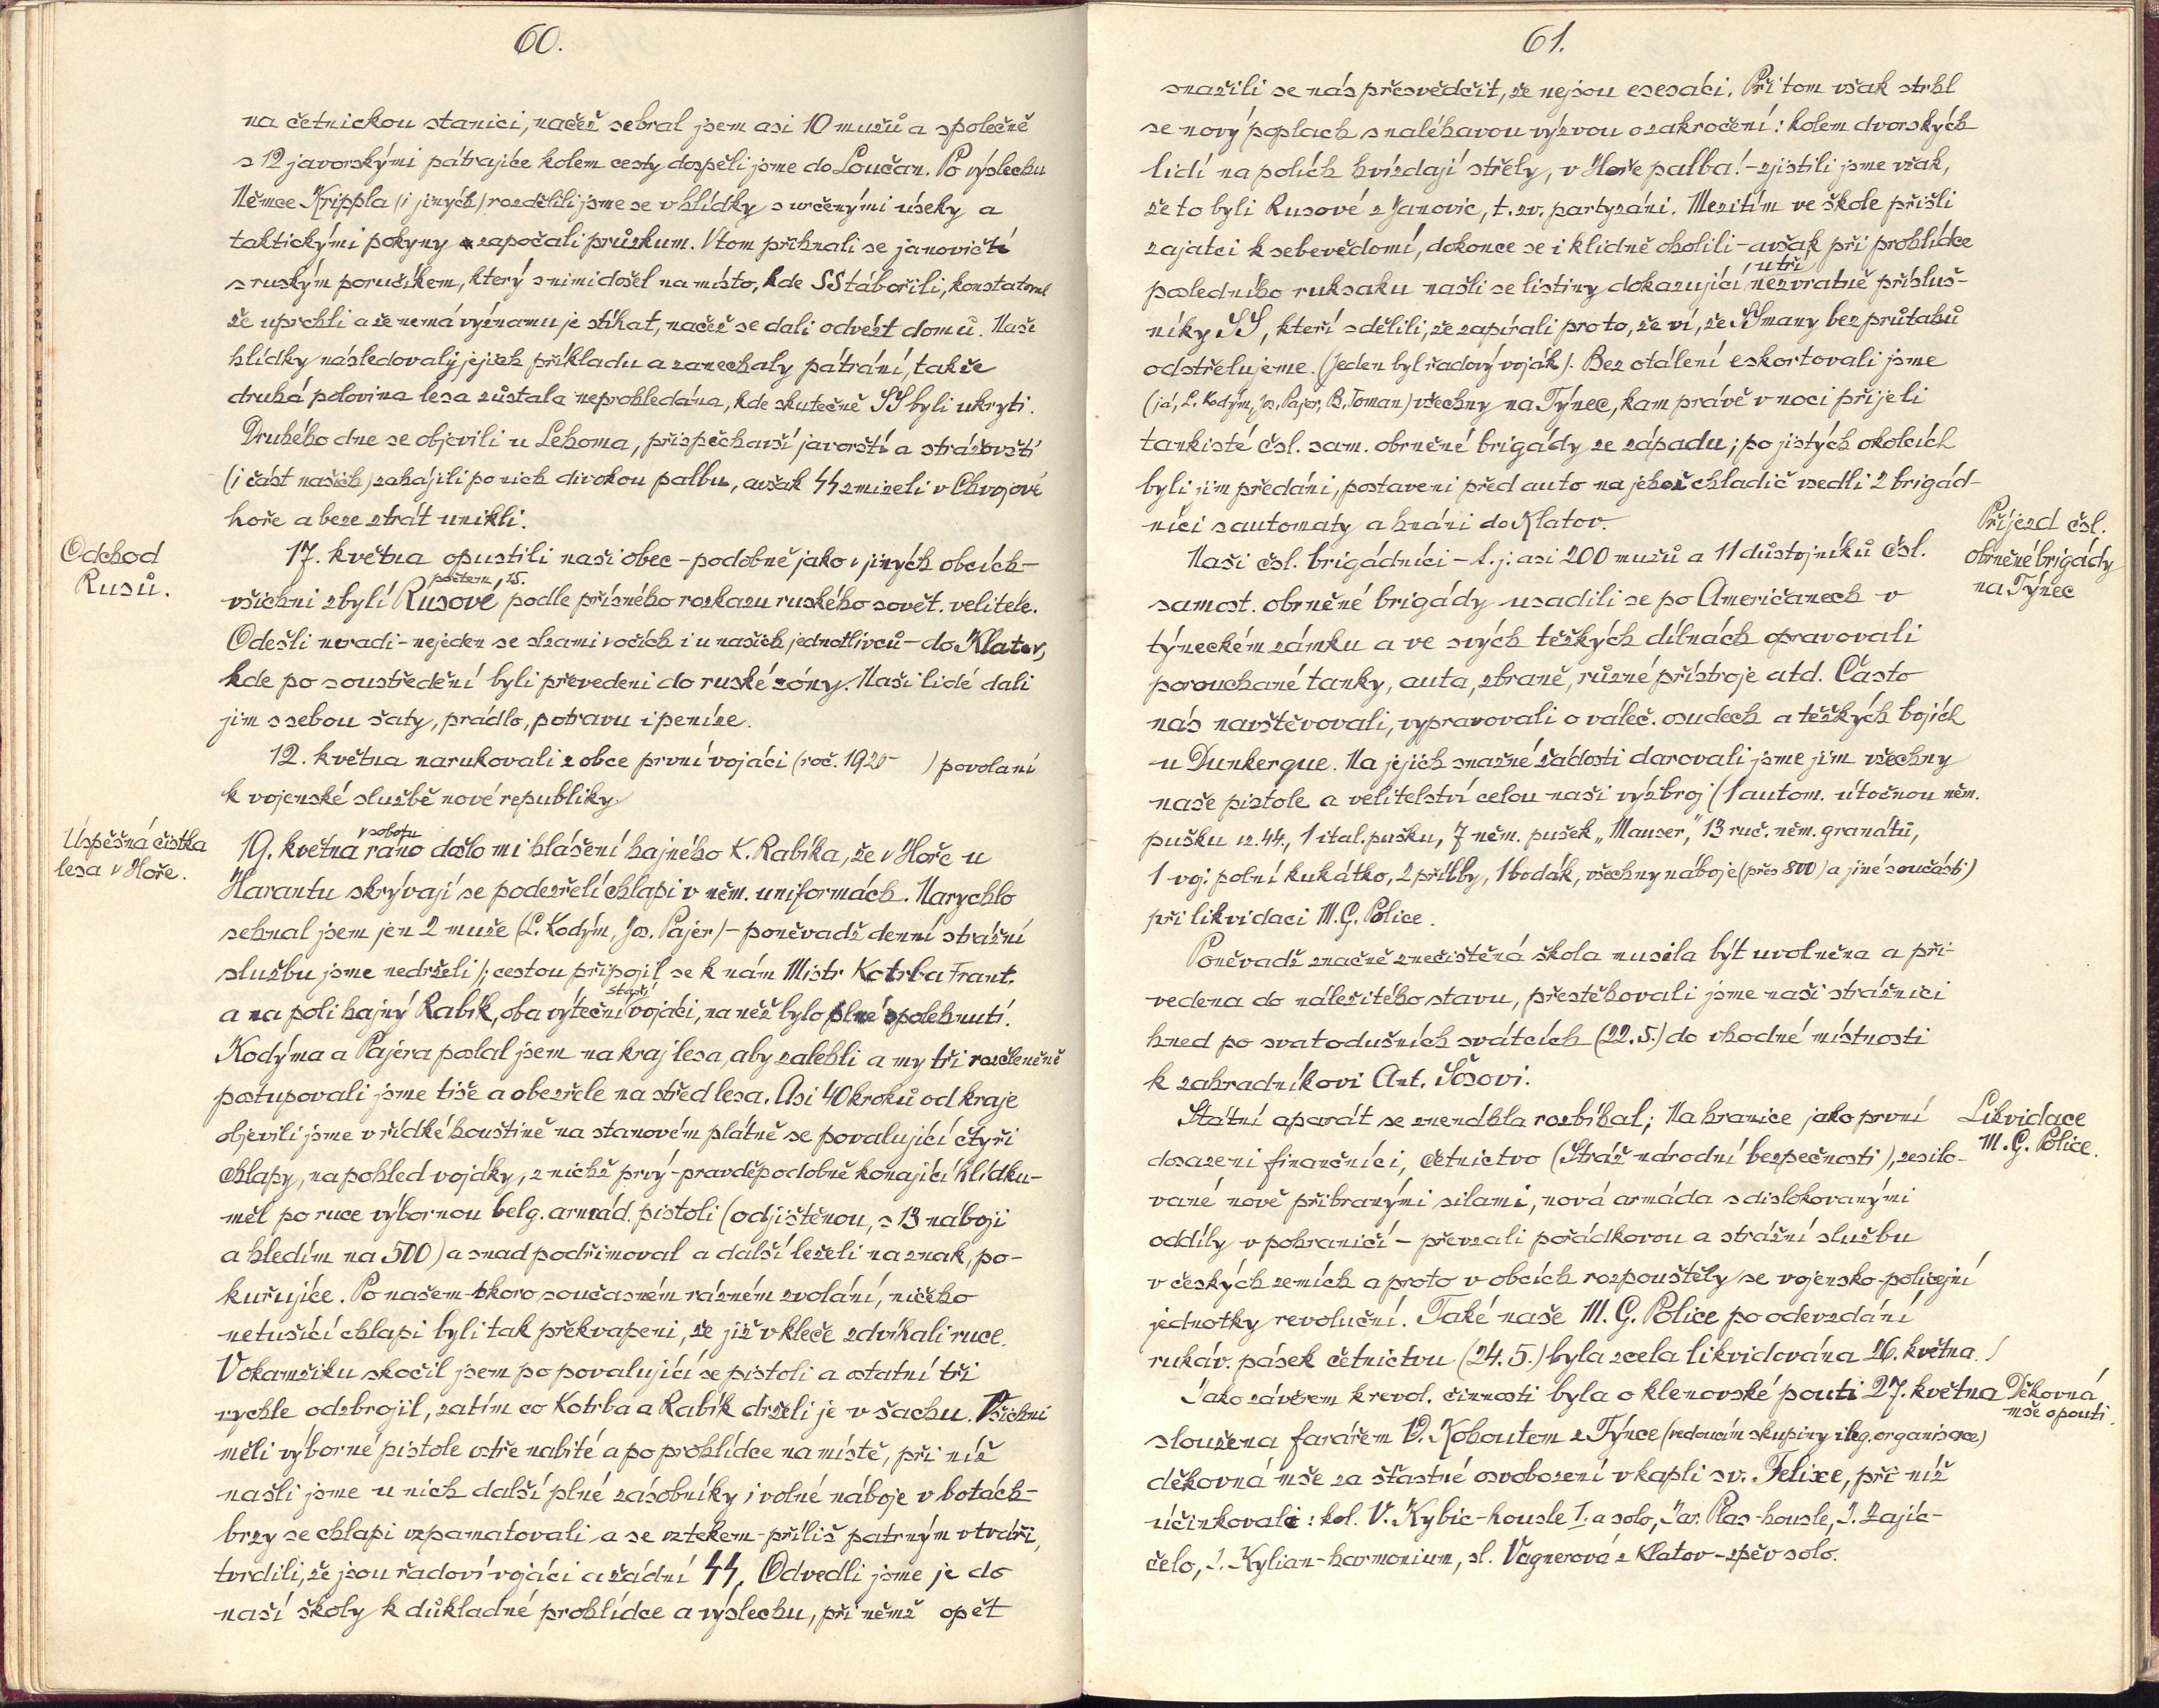 60.
na četnickou stanici, načež sebral jsem asi 10 mužů a společně
s 12 javorskými pátrajíce kolem cesty dospěli jsme do Loučan. Po výslechu
Němce Krippla (i jiných) rozdělili jsme se v hlídky s určenými úseky a
taktickými pokyny započali průzkum. Vtom přihnali se janovičtí
s ruským poručíkem, který s nimi došel na místo, kde SS tábořili, konstatoval
že uprchli a že nemá významu je stíhat, načež se dali odvézt domů. Naše
hlídky následovaly jejich příkladu a zanechaly pátrání, takže
druhá polovina lesa zůstala neprohledána, kde skutečně SS byli ukryti.
Druhého dne se objevili u Lehoma, přispěchavší javorští a strážovští
(i část našich) zahájili po nich divokou palbu, avšak SS zmizeli v Chvojové
hoře a beze ztrát unikli.
Odchod
Rusů.
17. května opustili naši obec - podobně jako v jiných obcích -
počtem 15.
všichni zbylí Rusové podle přísného rozkazu ruského sovět. velitele.
Odešli neradi - nejeden se slzami v očích i u našich jednotlivců - do Klatov,
kde po soustředění byli převedeni do ruské zóny. Naši lidé dali
jim s sebou šaty, prádlo, potravu i peníze.
12. května narukovali z obce první vojáci (roč. 1920- ) povolaní
k vojenské službě nové republiky.
Úspěšná čistka
lesa v Hoře.
v sobotu
19. května ráno došlo mi hlášení hajného K. Rabíka, že v Hoře u
Harantu skrývají se podezřelí chlapi v něm. uniformách. Narychlo
sehnal jsem jen 2 muže (L. Kodým, Jos. Pajer) - poněvadž denní strážní
službu jsme nedrželi /; cestou připojil se k nám Mistr Kotrba Frant.
staří
a na poli hajný Rabík, oba výteční vojáci, na něž bylo plné spolehnutí.
Kodýma a Pajera poslal jsem na kraj lesa, aby zalehli a my tři rozčleněně
postupovali jsme tiše a obezřele na střed lesa. Asi 40 kroků od kraje
objevili jsme v řídké houštině na stanovém plátně se povalující čtyři
chlapy, na pohled vojáky, z nichž prvý - pravděpodobně konající hlídku -
měl po ruce výbornou belg. armád. pistoli (odjištěnou, s 13 náboji
a hledím na 500) a snad podřimoval a další leželi na znak, po-
kuřujíce. Po našem skoro současném rázném zvolání, ničeho
netušící chlapi byli tak překvapeni, že již v kleče zdvíhali ruce.
V okamžiku skočil jsem po povalující se pistoli a ostatní tři
rychle odzbrojil, zatím co Kotrba a Rabík drželi je v šachu. Všichni
měli výborné pistole ostře nabité a po prohlídce na místě, při níž
našli jsme u nich další plné zásobníky i volné náboje v botách -
brzy se chlapi vzpamatovali a se vztekem - příliš patrným v tváři,
tvrdili, že jsou řadoví vojáci a žádní SS. Odvedli jsme je do
naší školy k důkladné prohlídce a výslechu, při němž opět
61.
snažili se nás přesvědčit, že nejsou esesáci. Při tom však strhl
se nový poplach s naléhavou výzvou o zakročení: kolem dvorských
lidí na polích hvízdají střely, v Hoře palba! - zjistili jsme však,
že to byli Rusové z Janovic, t. zv. partyzáni. Mezitím ve škole přišli
zajatci k sebevědomí, dokonce se i klidně oholili - avšak při prohlídce
u tří
posledního ruksaku našli se listiny dokazující nezvratně přísluš-
níky SS, kteří sdělili, že zapírali proto, že ví, že SSmany bez průtahů
odstřelujeme. (Jeden byl řadový voják). Bez otálení eskortovali jsme
(já, L. Kodým, Jos. Pajer, B. Toman) všechny na Týnec, kam právě v noci přijeli
tankisté čsl. sam. obrněné brigády ze západu; po jistých okolcích
byli jim předáni, postaveni před auto na jehož chladič usedli 2 brigád-
níci s automaty a hnáni do Klatov.
Příjezd čsl.
obrněné brigády
na Týnec
Naši čsl. brigádníci - t. j. asi 200 mužů a 11 důstojníků čsl.
samost. obrněné brigády usadili se po Američanech v
týneckém zámku a ve svých těžkých dílnách opravovali
porouchané tanky, auta, zbraně, různé přístroje atd. Často
nás navštěvovali, vypravovali o váleč. osudech a těžkých bojích
u Dunkerque. Na jejich snažné žádosti darovali jsme jim všechny
naše pistole a velitelství celou naši výzbroj (1 autom. útočnou něm.
pušku vz. 44., 1 ital. pušku, 7 něm. pušek „Mauser," 13 ruč. něm. granátů,
1 voj. polní kukátko, 2 přilby, 1 bodák, všechny náboje (přes 800) a jiné součásti)
při likvidaci M. G. Police.
Poněvadž značně znečistěná škola musila být uvolněna a při-
vedena do náležitého stavu, přestěhovali jsme naši strážnici
hned po svatodušních svátcích (22. 5.) do vhodné místnosti
k zahradníkovi Ant. Šosovi.
Likvidace
M. G. Police.
Státní aparát se znenáhla rozbíhal; Na hranice jako první
dosazeni finančníci, četnictvo (Stráž národní bezpečnosti), zesilo-
vané nově přibranými silami, nová armáda s dislokovanými
oddíly v pohraničí - převzali pořádkovou a strážní službu
v českých zemích a proto v obcích rozpouštěly se vojensko-policejní
jednotky revoluční. Také naše M. G. Police po odevzdání
rukáv. pásek četnictvu (24. 5.) byla zcela likvidována 26. května.
Děkovná
mše o pouti.
Jako závěrem k revol. činnosti byla o klenovské pouti 27. května
sloužena farářem V. Kohoutem z Týnce (vedoucím skupiny ileg. organisace)
děkovná mše za šťastné osvobození v kapli sv. Felixe, při níž
účinkovali: kol. V. Kybic - housle I. a solo, Jar. Plas - housle, J. Zajíc -
čelo, J. Kylian - harmonium, sl. Vagnerová z Klatov - zpěv solo.